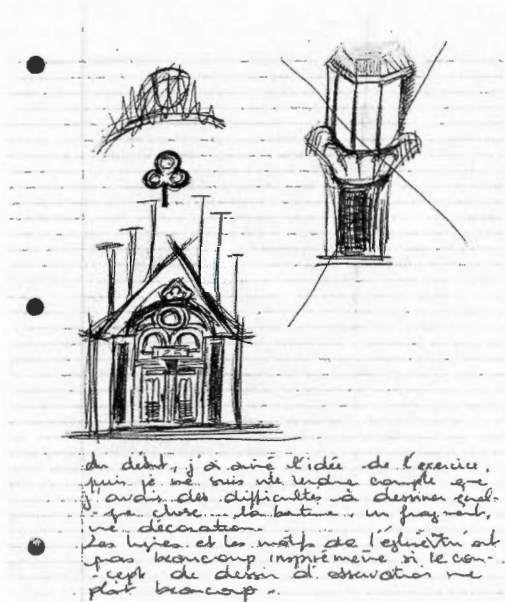 Au début, j'ai aimé l'idée de l'exercice,
puis je me suis vite rendue compte que
j'avais des difficultés à dessiner quel-
que chose... la texture, un fragment,
une décoration.
Les lignes et les motifs de l'église m'ont
pas beaucoup inspiré même si le con-
cept de dessin d'observation me
plaît beaucoup.